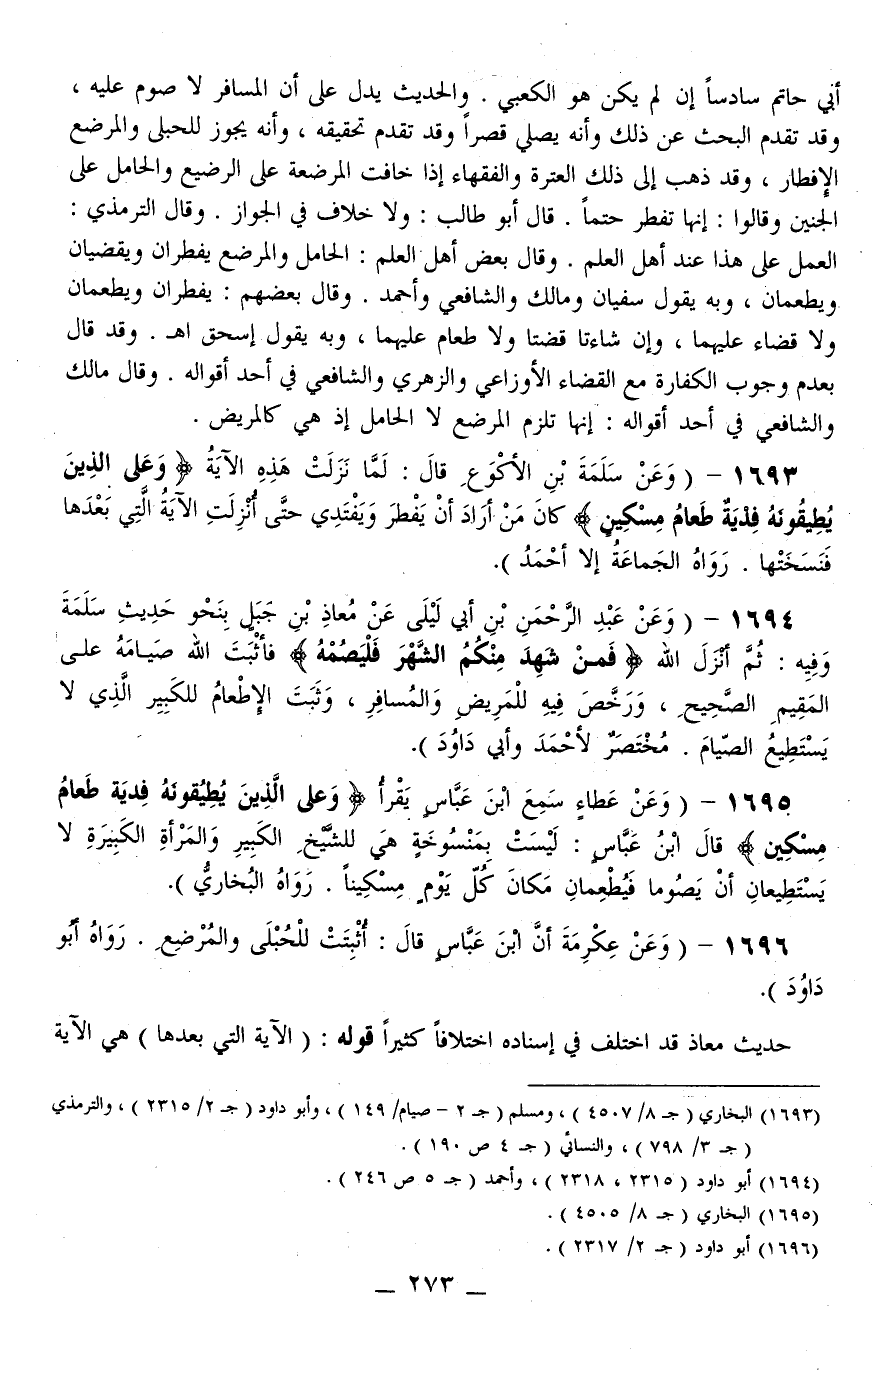 أبي حاتم سادساً إن لم يكن هو الكعبي . والحديث يدل على أن المسافر لا صوم عليه ،
وقد تقدم البحث عن ذلك وأنه يصلي قصراً وقد تقدم تحقيقه ، وأنه يجوز للحبلى والمرضع
الإفطار ، وقد ذهب إلى ذلك العترة والفقهاء إذا خافت المرضعة على الرضيع والحامل على
الجنين وقالوا : إنها تفطر حتماً . قال أبو طالب : ولا خلاف في الجواز . وقال الترمذي :
العمل على هذا عند أهل العلم . وقال بعض أهل العلم : الحامل والمرضع يفطران ويقضيان
ويطعمان ، وبه يقول سفيان ومالك والشافعي وأحمد . وقال بعضهم : يفطران ويطعمان
ولا قضاء عليهما ، وإن شاءتا قضتا ولا طعام عليهما ، وبه يقول إسحق اهـ . وقد قال
بعدم وجوب الكفارة مع القضاء الأوزاعي والزهري والشافعي في أحد أقواله . وقال مالك
والشافعي في أحد أقواله : إنها تلزم المرضع لا الحامل إذ هي كالمريض .
١٦٩٣ – ( وَعَنْ سَلَمَةَ بْنِ الأكْوَعِ قالَ : لَمَّا نَزَلَتْ هَذِهِ الآيَةُ ﴿ وَعَلى الذِينَ
يُطِيقُونَهُ فِدْيَةٌ طَعَامُ مِسْكِينٍ ﴾ كانَ مَنْ أرَادَ أنْ يَفْطرَ وَيَفْتَدِي حتَّى أُنْزِلَتِ الآيَةُ الَّتِي بَعْدَها
فَنَسَخَتْها . رَوَاهُ الجَماعَةُ إلا أحْمَدُ ).
١٦٩٤ – ( وَعَنْ عَبْدِ الرَّحْمَنِ بْنِ أبي لَيْلَى عَنْ مُعاذِ بْنِ جَبَلٍ بِنَحْوِ حَدِيثِ سَلَمَةَ
وَفِيه : ثُمَّ أنْزَلَ الله ﴿ فَمنْ شَهِدَ مِنْكُمُ الشَّهْرَ فَلْيَصُمْهُ ﴾ فأثْبَتَ الله صَيامَهُ على
المَقِيمِ الصَّحِيحِ ، وَرَخَّصَ فِيهِ لِلْمَرِيضِ وَالمُسافِرِ ، وَثَبَتَ الإطْعامُ للكَبِيرِ الَّذِي لا
يَسْتَطِيعُ الصّيامَ . مُخْتَصَرٌ لأحْمَدَ وأبي دَاوُدَ ).
١٦٩٥ – ( وَعَنْ عَطاءٍ سَمِعَ ابْنَ عَبَّاسٍ يَقْرأُ ﴿ وَعلى الَّذِينَ يُطِيْقونَهُ فِدية طَعامُ
مِسْكِين ﴾ قالَ ابْنُ عَبَّاسٍ : لَيْسَتْ بِمَنْسُوخَةٍ هِيَ للشَّيْخِ الكَبِيرِ وَالمَرْأةِ الكَبِيرَةِ لا
يَسْتَطِيعانِ أنْ يَصُوما فَيُطْعِمانِ مَكانَ كُلّ يَوْمٍ مِسْكِيناً . رَوَاهُ البُخاريُّ ).
١٦٩٦ – ( وَعَنْ عِكْرِمَةَ أنَّ ابْنَ عَبَّاسٍ قالَ : أُثْبِتَتْ لْلحُبْلَى والمُرْضِعِ . رَوَاهُ أبُو
دَاوُدَ ).
حديث معاذ قد اختلف في إسناده اختلافاً كثيراً قوله : ( الآية التي بعدها ) هي الآية
(١٦٩٣) البخاري ( جـ ٨/ ٤٥٠٧ ) ، ومسلم ( جـ ٢ – صيام/ ١٤٩ ) ، وأبو داود ( جـ ٢/ ٢٣١٥ ) ، والترمذي
( جـ ٣/ ٧٩٨ ) ، والنسائي ( جـ ٤ ص ١٩٠ ) .
(١٦٩٤) أبو داود ( ٢٣١٥ ، ٢٣١٨ ) ، وأحمد ( جـ ٥ ص ٢٤٦ ) .
(١٦٩٥) البخاري ( جـ ٨/ ٤٥٠٥ ) .
(١٦٩٦) أبو داود ( جـ ٢/ ٢٣١٧ ) .
ــ ٢٧٣ ــ